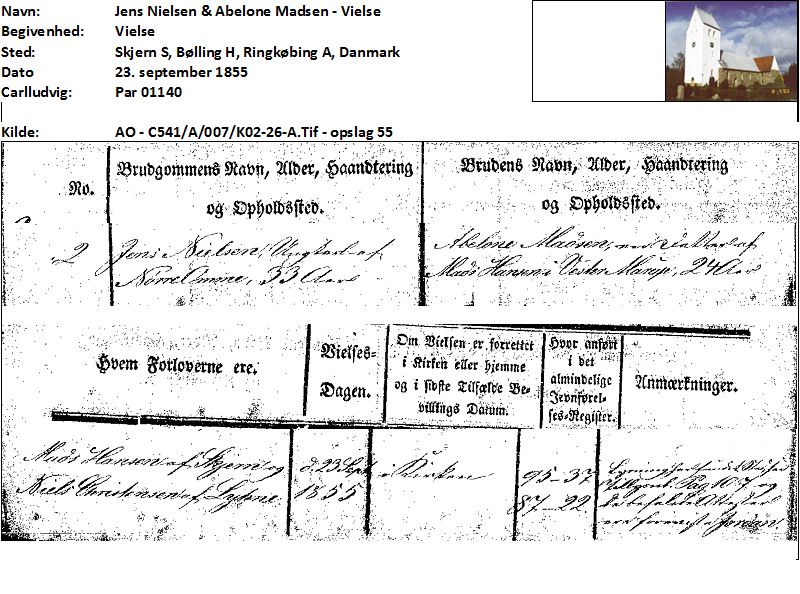 Navn: Jens Nielsen & Abelone Madsen - Vielse
Begivenhed: Vielse
Sted: Skjern S, Bølling H, Ringkøbing A, Danmark
Dato 23. september 1855
Carlludvig: Par 01140
Kilde: AO - C541/A/007/K02-26-A.Tif - opslag 55
No.
Brudgommens Navn, Alder, Haandtering
og Opholdssted.
Brudens Navn, Alder, Haandtering
og Opholdssted.
2
Jens Nielsen, Ungkarl af
33 Aar
Abelone Madsen, Datter af
Mads Hansen i Vester 24 Aar
Hvem Forloverne ere.
Vielses-
Dagen.
Om Vielsen er forrettet
i Kirken eller hjemme
og i sidste Tilfælde Be-
villings Datum.
Hvor anført
i det
almindelige
Jevnførel-
ses-Register.
Anmærkninger.
Mads Hansen af Skjern og
Niels Christensen af Lyhne
d. 23 Sept
1855
i Kirken
95-37
87-22
Pag 107 og